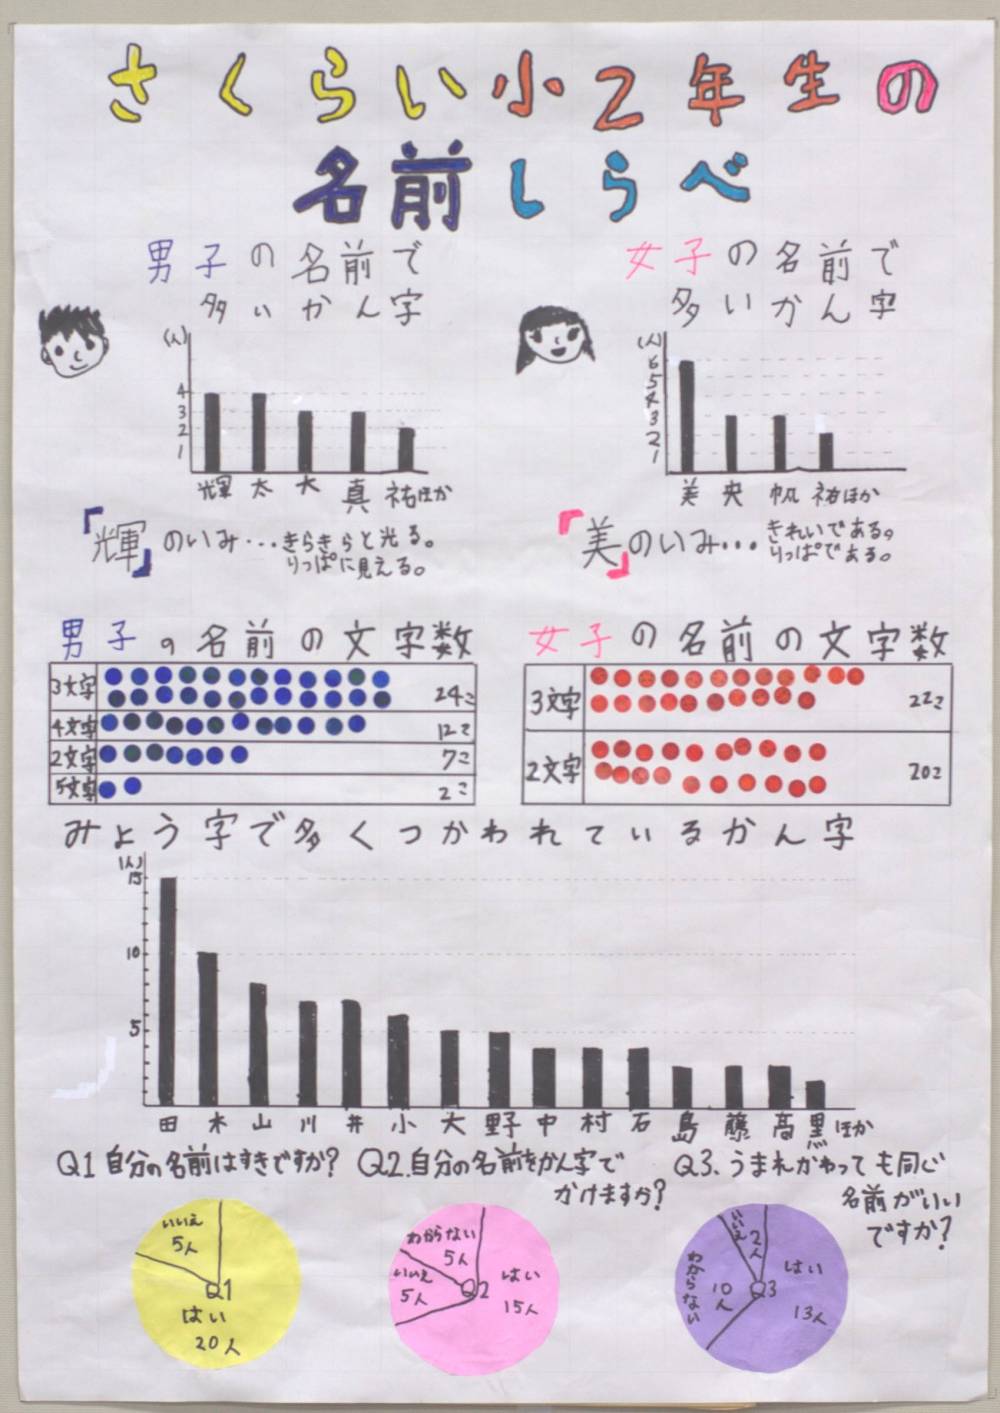 さくらい小2年生の
名前しらべ
男子の名前で
多いかん字
(人)
4
3
2
1
輝 太 大 真 祐ほか
女子の名前で
多いかん字
(人)
6
5
4
3
2
1
美 央 帆 祐ほか
「輝」のいみ…きらきらと光る。
りっぱに見える。
「美」のいみ…きれいである。
りっぱである。
男子の名前の文字数
3文字 24こ
4文字 12こ
2文字 7こ
5文字 2こ
女子の名前の文字数
3文字 22こ
2文字 20こ
みょう字で多くつかわれているかん字
(人)
15
10
5
田 木 山 川 井 小 大 野 中 村 石 島 藤 高 黒 ほか
Q1 自分の名前はすきですか?
いいえ
5人
Q1
はい
20人
Q2.自分の名前をかん字で
かけますか?
わからない
5人
いいえ
5人
Q2
はい
15人
Q3.うまれかわっても同じ
名前がいい
ですか?
いいえ
2人
わからない
10人
Q3
はい
13人